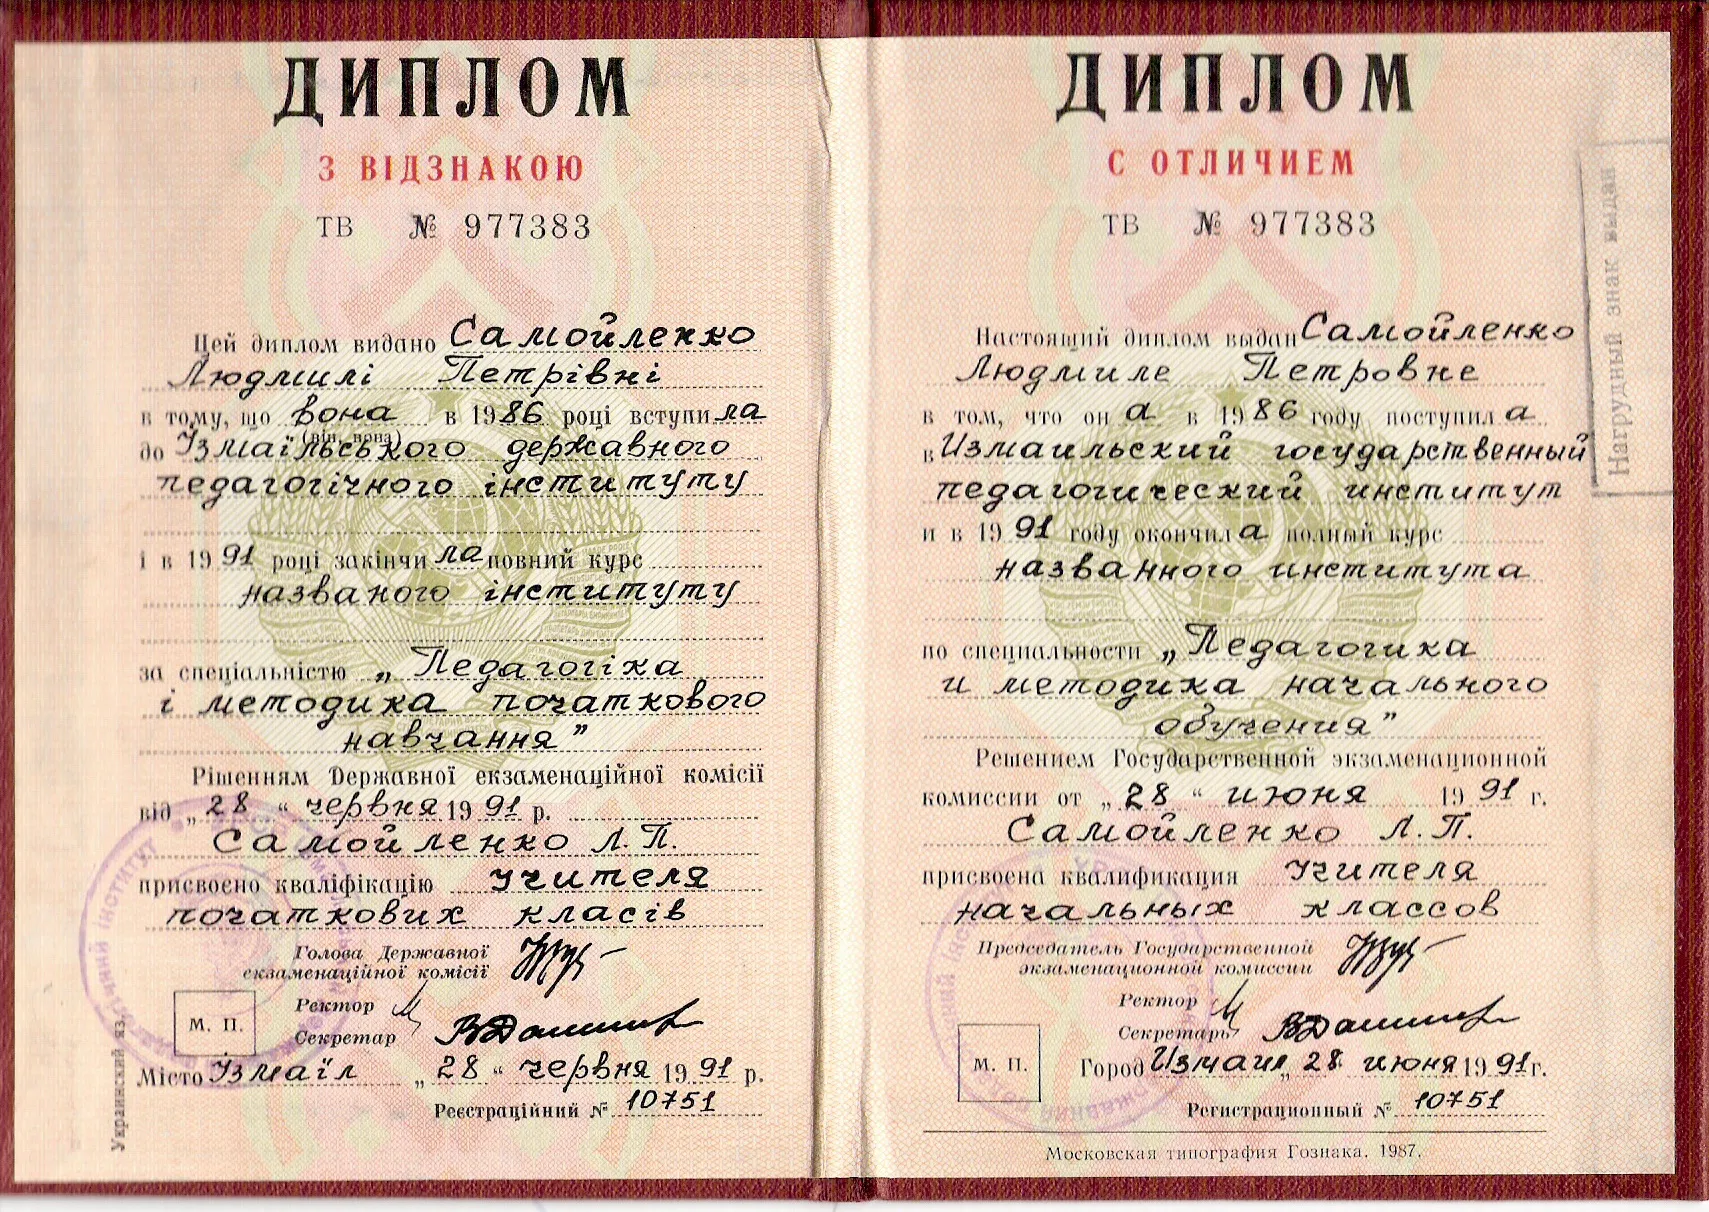 ДИПЛОМ
З ВІДЗНАКОЮ
ТВ № 977383
Цей диплом видано Самойленко
Людмилі Петрівні
в тому, що вона в 1986 році вступила
(він, вона)
до Ізмаїльського державного
педагогічного інституту
і в 1991 році закінчила повний курс
названого інституту
за спеціальністю „Педагогіка
і методика початкового
навчання"
Рішенням Державної екзаменаційної комісії
від „28" червня 1991 р.
Самойленко Л. П.
присвоєно кваліфікацію учителя
початкових класів
Голова Державної
екзаменаційної комісії
Ректор
Секретар
М. П.
Місто Ізмаїл „28" червня 1991 р.
Реєстраційний № 10751
Украинский яз.
ДИПЛОМ
С ОТЛИЧИЕМ
ТВ № 977383
Настоящий диплом выдан Самойленко
Людмиле Петровне
в том, что она в 1986 году поступила
в Измаильский государственный
педагогический институт
и в 1991 году окончила полный курс
названного института
по специальности „Педагогика
и методика начального
обучения"
Решением Государственной экзаменационной
комиссии от „28" июня 1991 г.
Самойленко Л. П.
присвоена квалификация учителя
начальных классов
Председатель Государственной
экзаменационной комиссии
Ректор
Секретарь
М. П.
Город Измаил „28 июня 1991г.
Регистрационный № 10751
Московская типография Гознака. 1987.
Нагрудный знак выдан